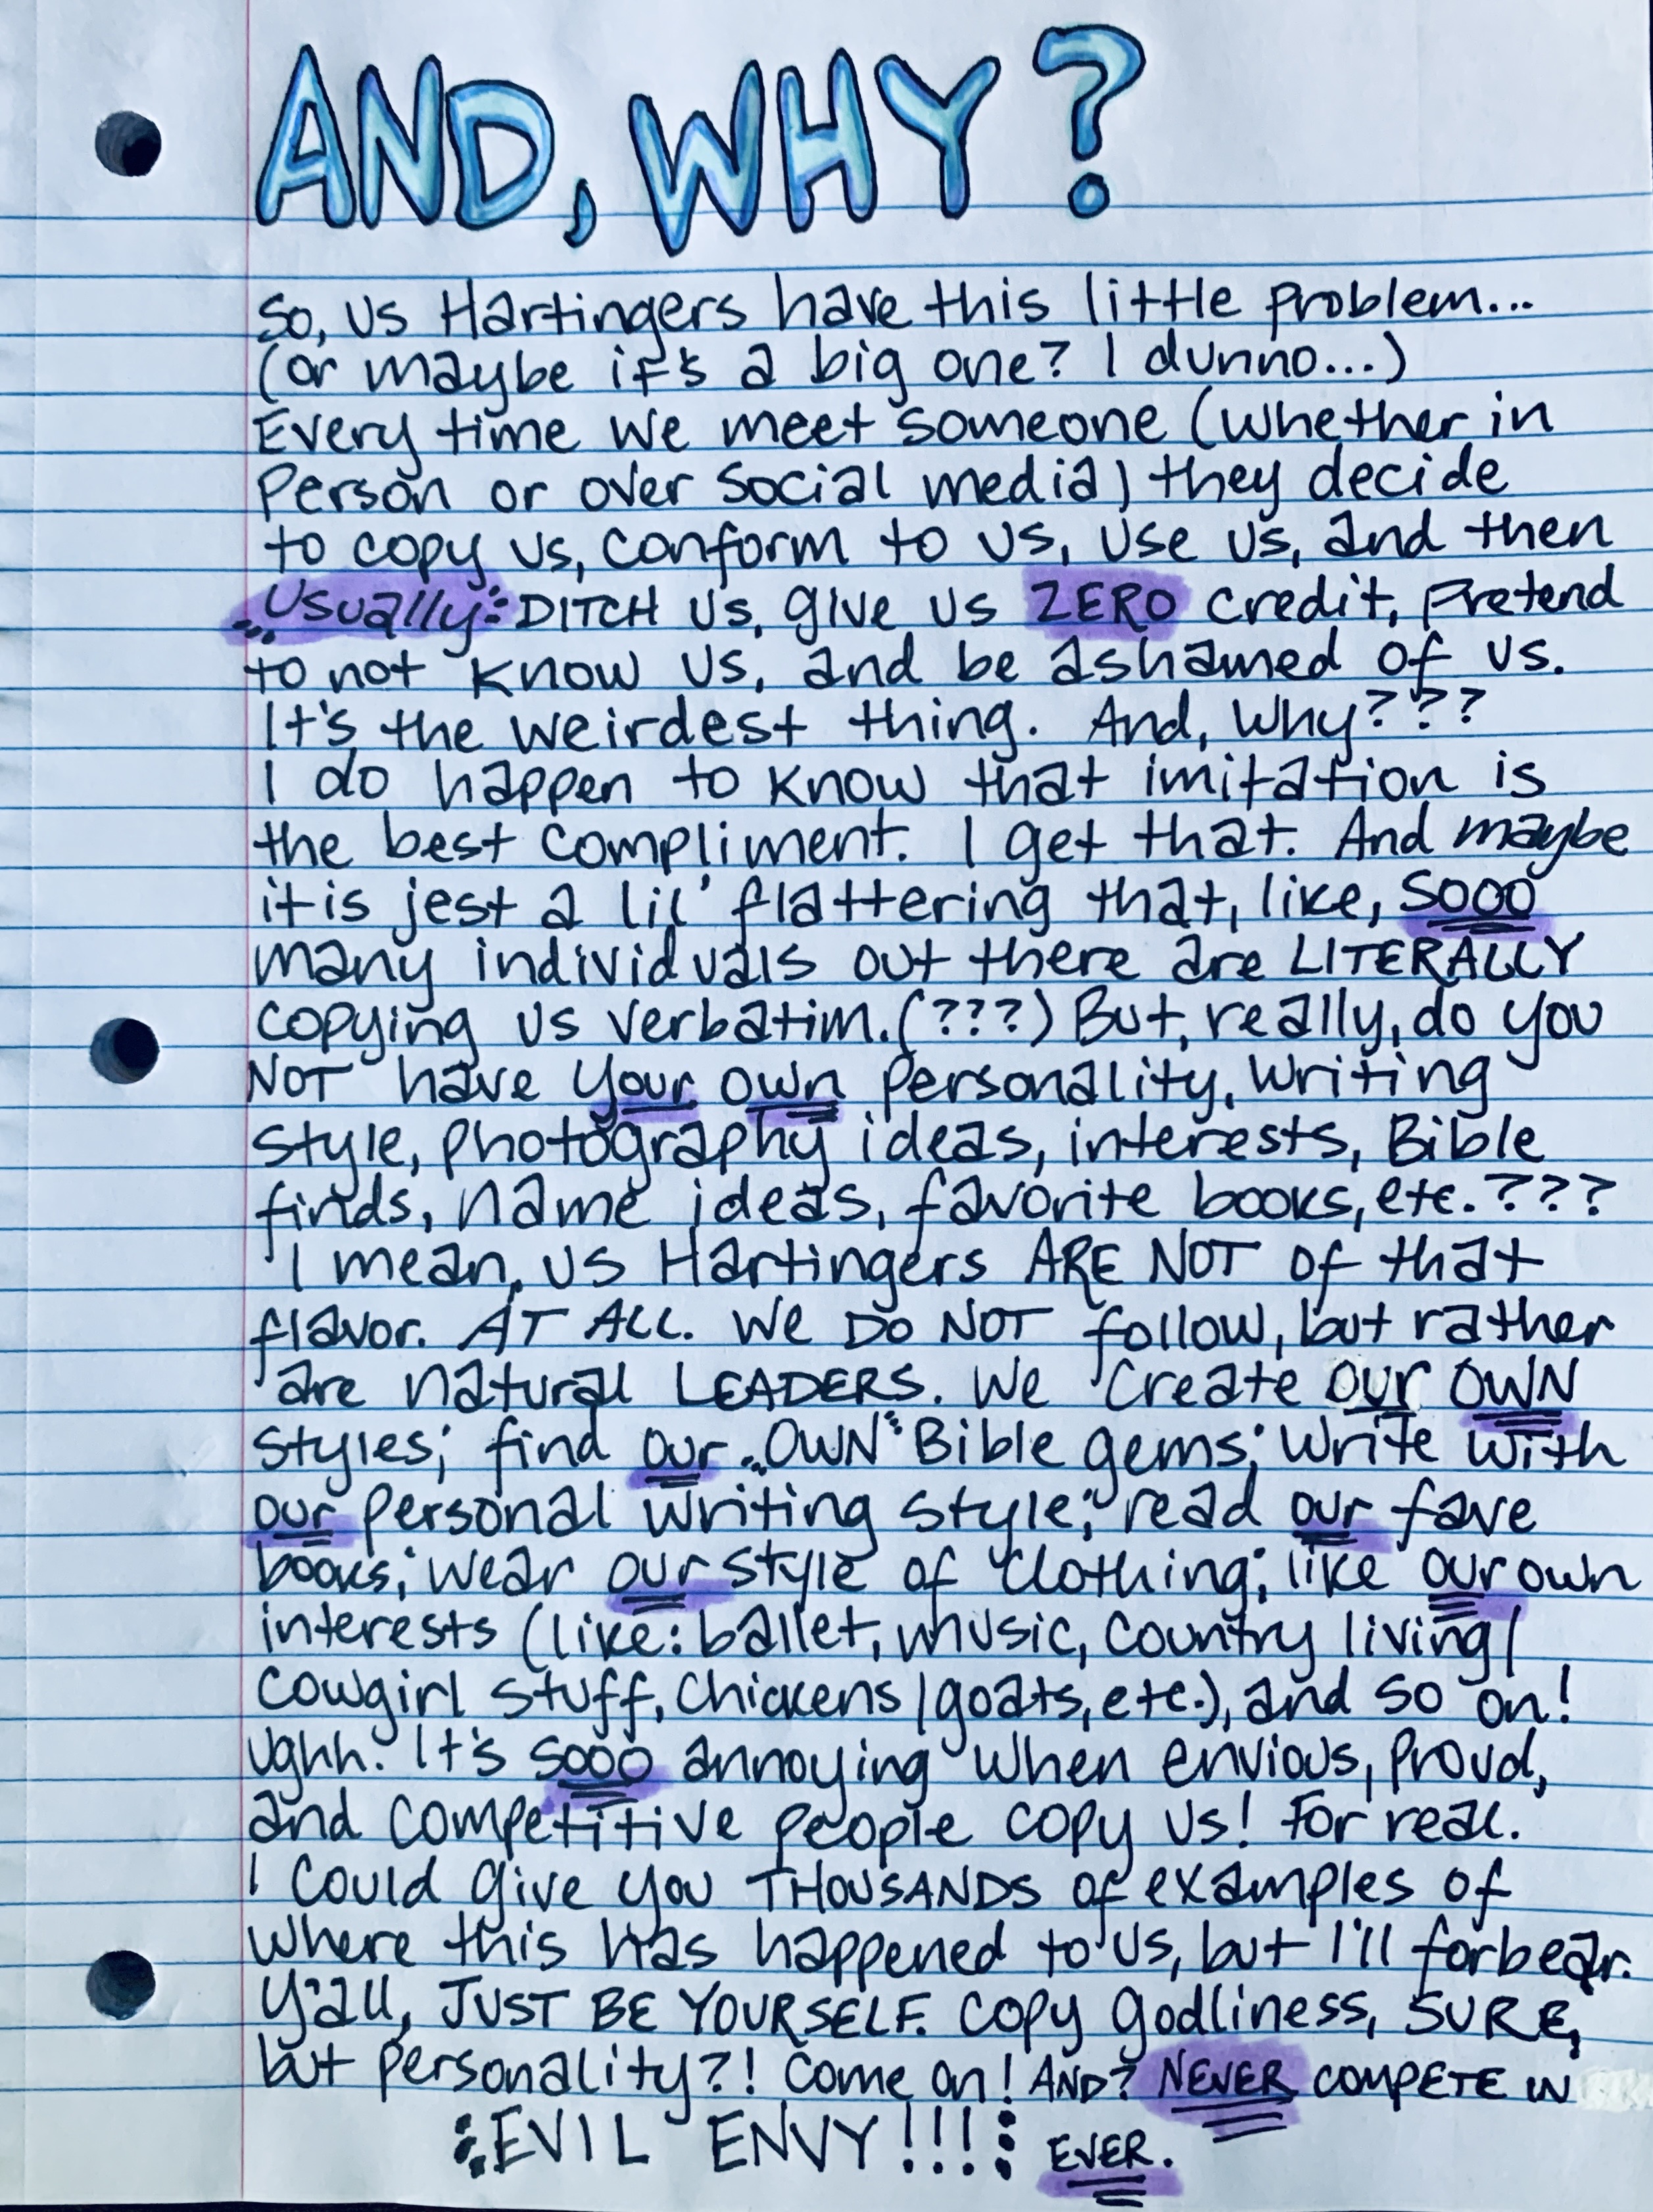 AND, WHY?
So, us Hartingers have this little problem...
(or maybe it's a big one? I dunno...)
Every time we meet someone (whether in
person or over social media) they decide
to copy us, conform to us, use us, and then
usually DITCH us, give us ZERO credit, pretend
to not know us, and be ashamed of us.
It's the weirdest thing. And, why???
I do happen to know that imitation is
the best compliment. I get that. And maybe
it is jest a lil' flattering that, like, sooo
many individuals out there are LITERALLY
copying us verbatim. (???) But, really, do you
NOT have your own personality, writing
style, photography ideas, interests, Bible
finds, name ideas, favorite books, etc.???
I mean, us Hartingers ARE NOT of that
flavor. AT ALL. We DO NOT follow, but rather
are natural LEADERS. We create our OWN
styles; find our OWN Bible gems; write with
our personal writing style; read our fave
books; wear our style of clothing; like our own
interests (like: ballet, music, country living/
cowgirl stuff, chickens/goats, etc.), and so on!
Ughh. It's sooo annoying when envious, proud,
and competitive people copy us! For real.
I could give you THOUSANDS of examples of
where this has happened to us, but I'll forbear.
Y'all, JUST BE YOURSELF. Copy godliness, SURE,
but personality?! Come on! AND? NEVER COMPETE IN
EVIL ENVY!!! EVER.